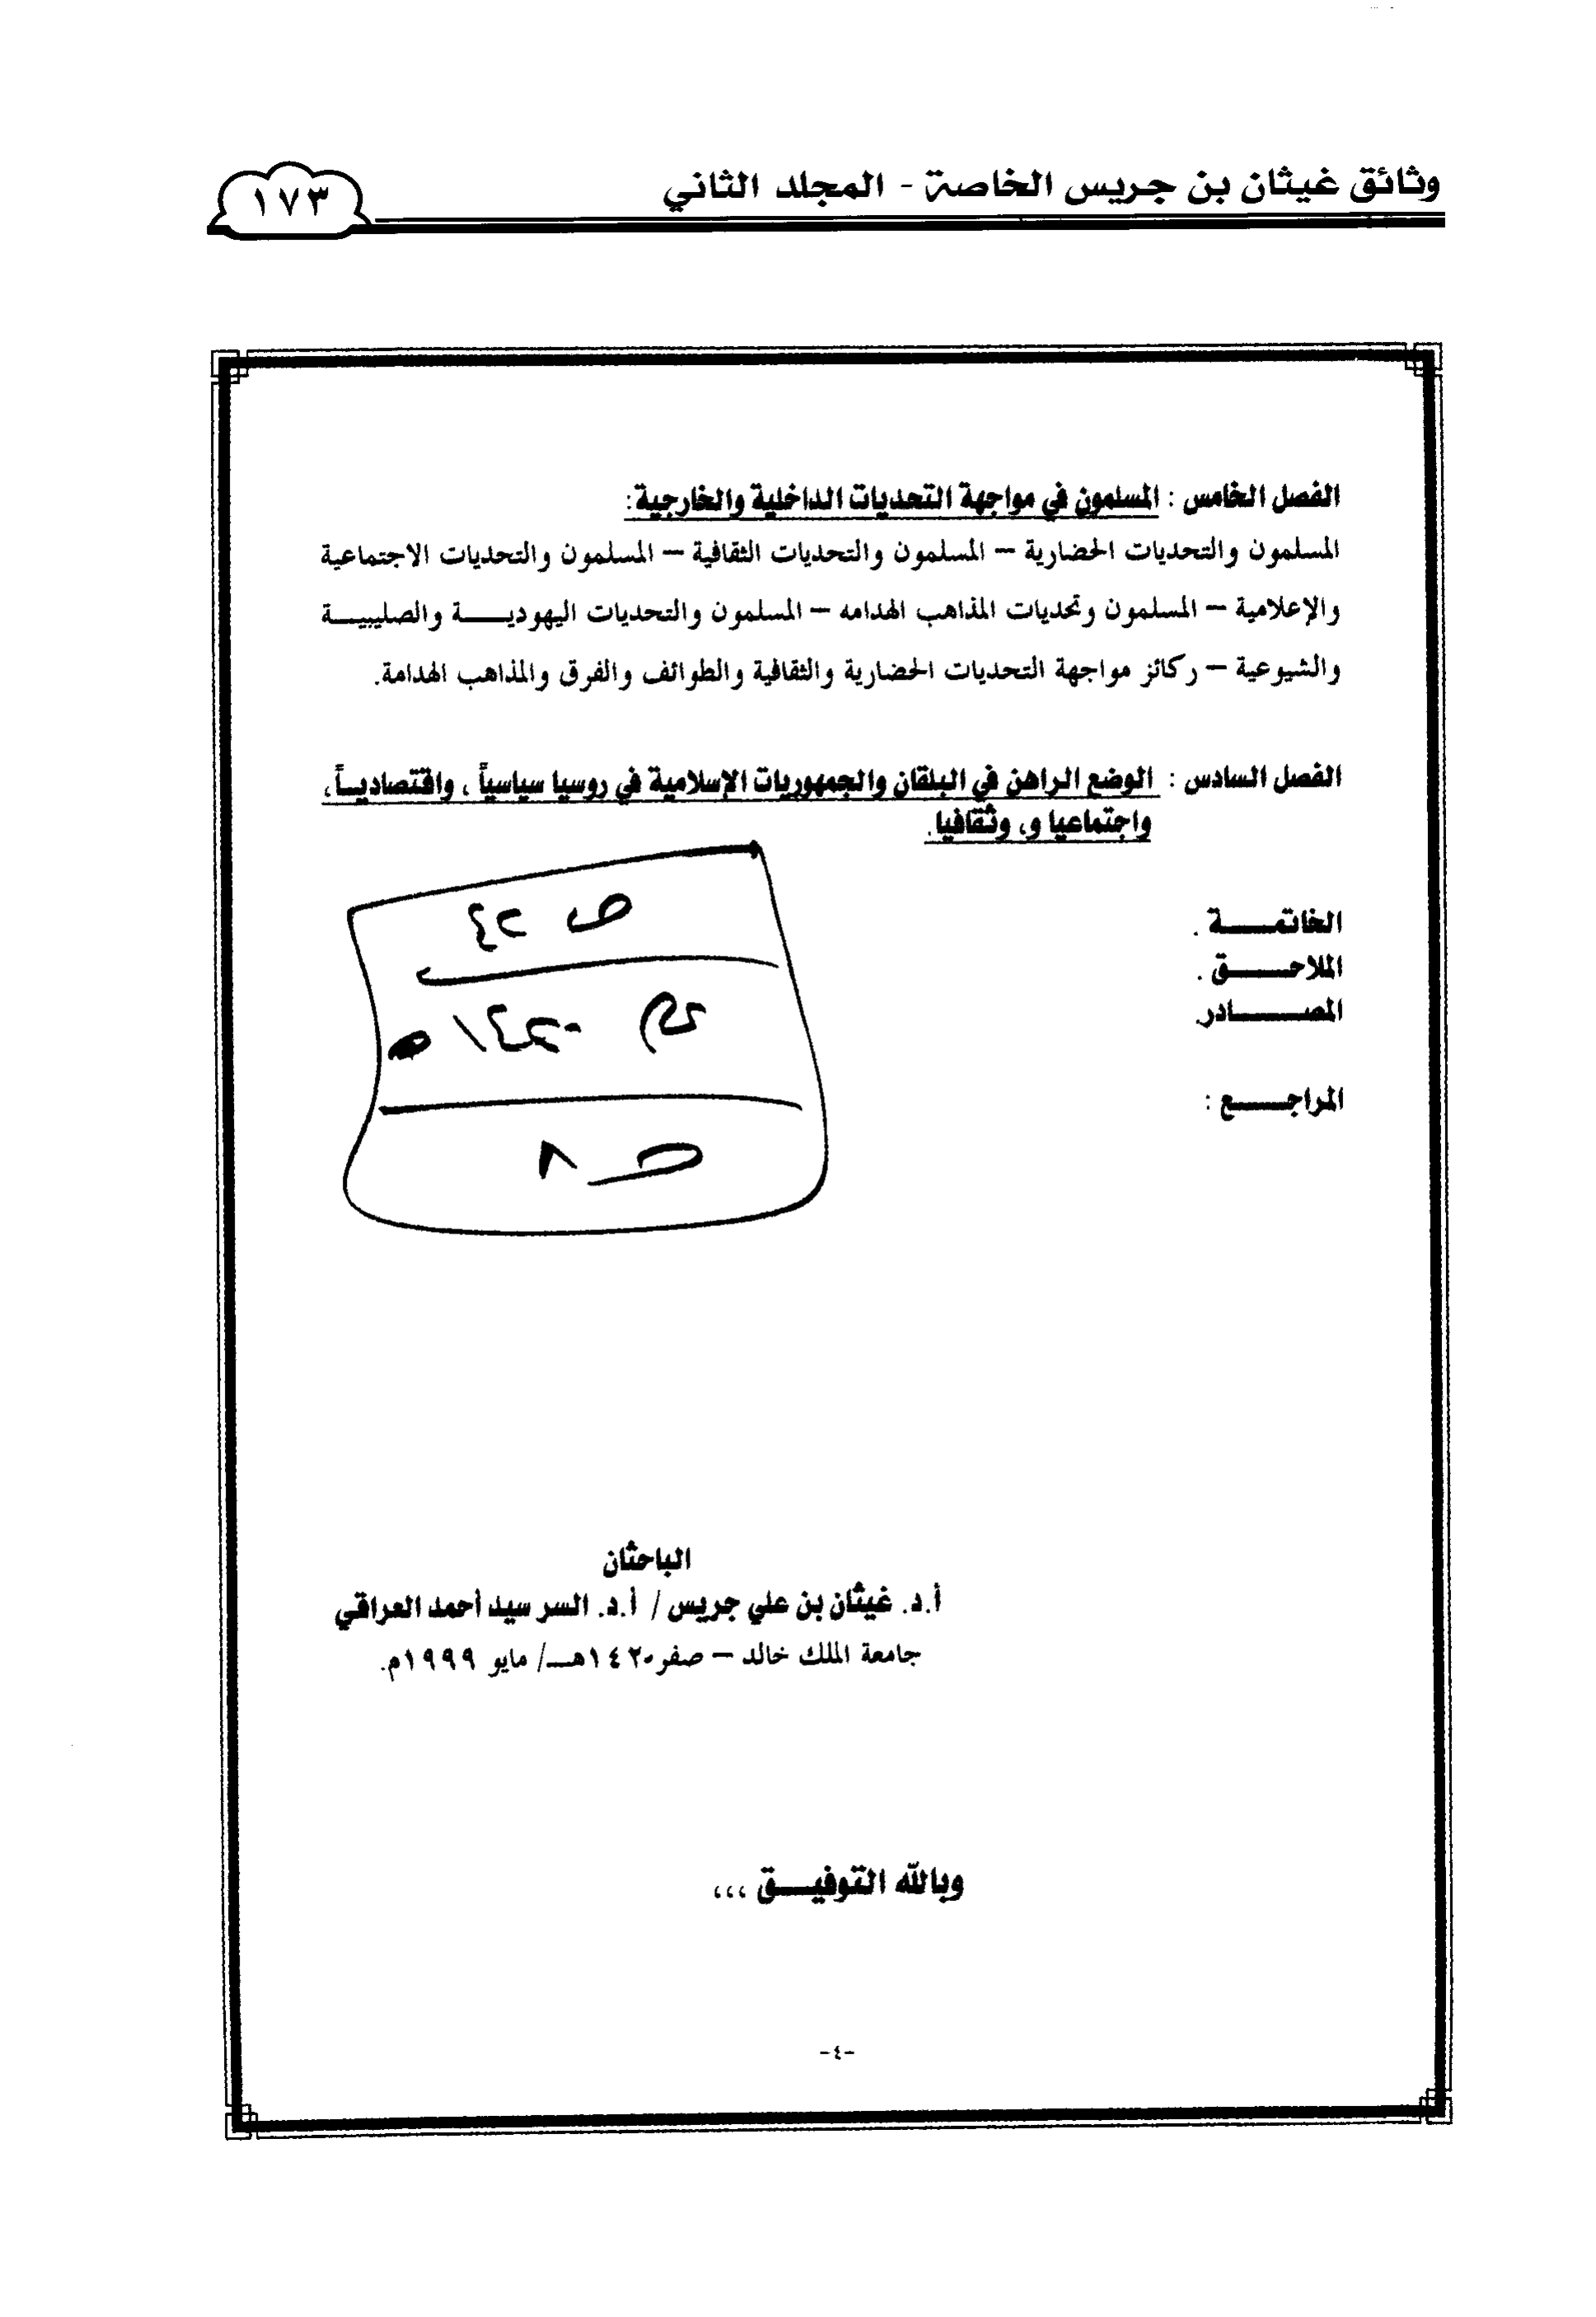 وثائق غيثان بن جريس الخاصة - المجلد الثاني
١٧٣
الفصل الخامس : المسلمون في مواجهة التحديات الداخلية والخارجية:
المسلمون والتحديات الحضارية – المسلمون والتحديات الثقافية – المسلمون والتحديات الاجتماعية
والإعلامية – المسلمون وتحديات المذاهب الهدامه – المسلمون والتحديات اليهوديـــة والصليبيـــة
والشيوعية – ركائز مواجهة التحديات الحضارية والثقافية والطوائف والفرق والمذاهب الهدامة.
الفصل السادس : الوضع الراهن في البلقان والجمهوريات الإسلامية في روسيا سياسياً ، واقتصاديـاً،
واجتماعيا و، وثقافيا.
الخاتمـــة .
الملاحـــق .
المصـــادر.
المراجـــع :
ص ٢٤
ص ٨
الباحثان
أ.د. غيثان بن علي جريس / أ.د. السر سيد أحمد العراقي
جامعة الملك خالد – صفر١٤٢٠هـــ/ مايو ١٩٩٩م.
وبالله التوفيـــق ،،،
-٤-